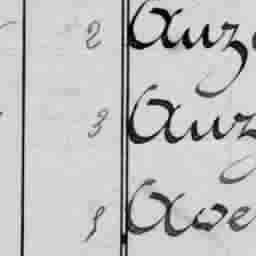 2 Auz
3 Auz
1 Ave